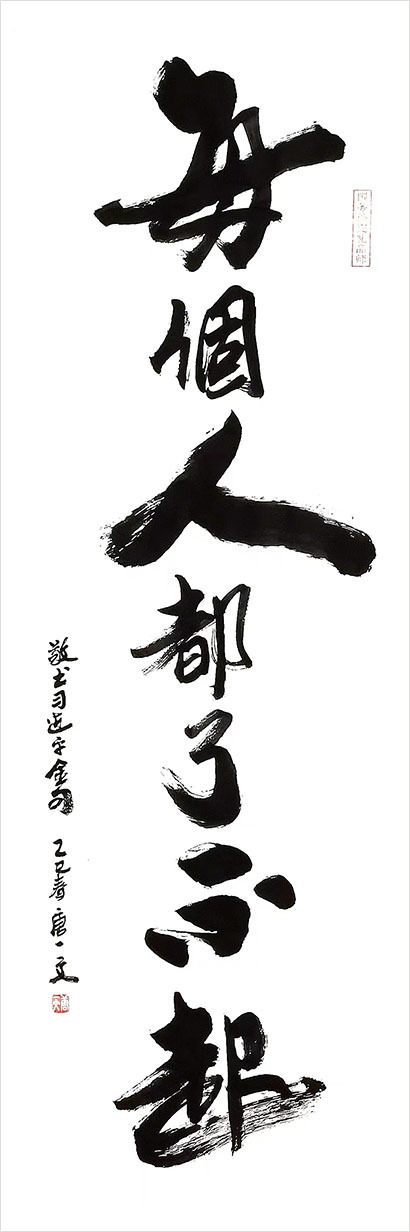 每個人都了不起
敬书习近平金句 乙巳春 唐一文